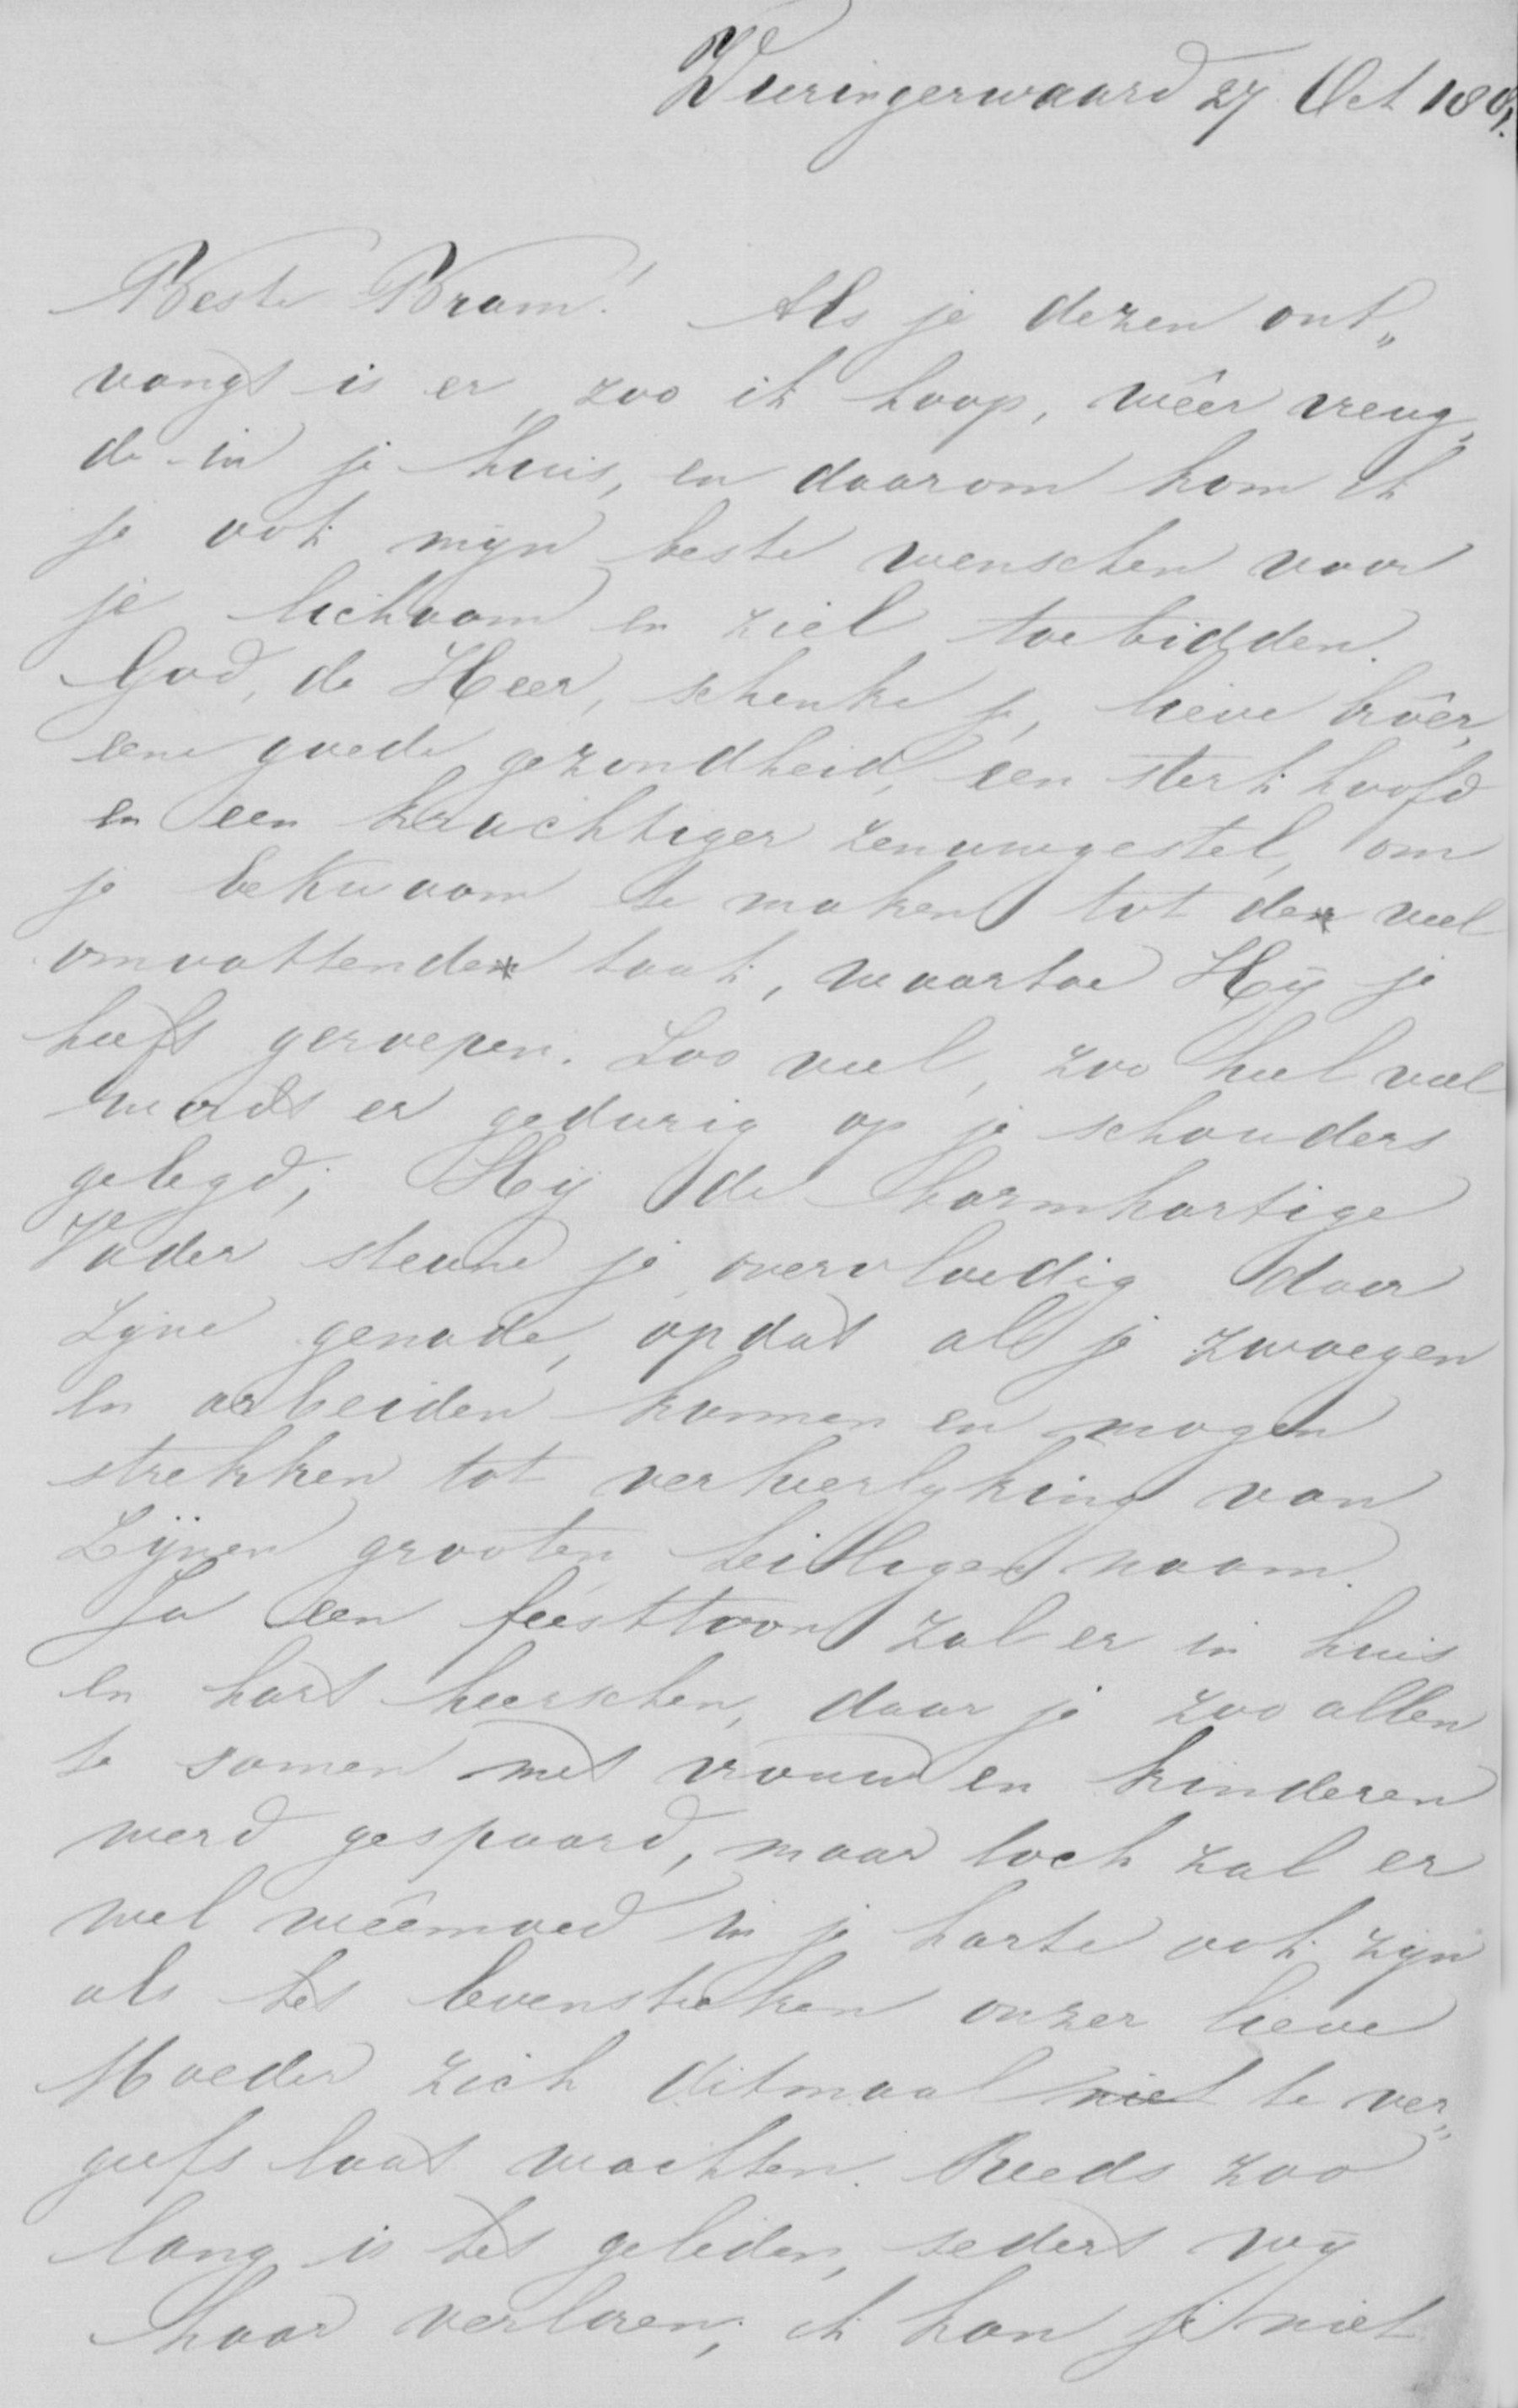 Wieringerwaard 27 Oct 18
Beste Bram! Als je dezen ont„
vangt is er, zoo ik hoop, wêer vreug„
de in je huis, en daarom kom ik
je ook mijn beste wenschen voor
je lichaam en ziel toebidden.
God, de Heer, schenke je, lieve brôer,
eene goede gezondheid, een sterk hoofd
en een krachtiger zenuwgestel, om
je bekwaam te maken tot den veel
omvattenden taak, waartoe Hij je
heeft geroepen. Zoo veel, zoo heel veel
wordt er gedurig op je schouders
gelegd; Hij de barmhartige
Vader steune je overvloedig door
zijne genade, opdat al je zwoegen
en arbeiden kunnen en mogen
strekken tot verheerlyking van
Zijnen grooten, heiligen naam.
Ja een feesttoon zal er in huis
en hart heerschen, daar je zoo allen
te samen met vrouw en kinderen
werd gespaard, maar toch zal er
wel wêemoed in je harte ook zijn
als het levensteeken onzer lieve
Moeder zich ditmaal niet te ver„
geefs laat wachten. Reeds zoo
lang is het geleden, sedert wij
haar verloren; ik kan je niet